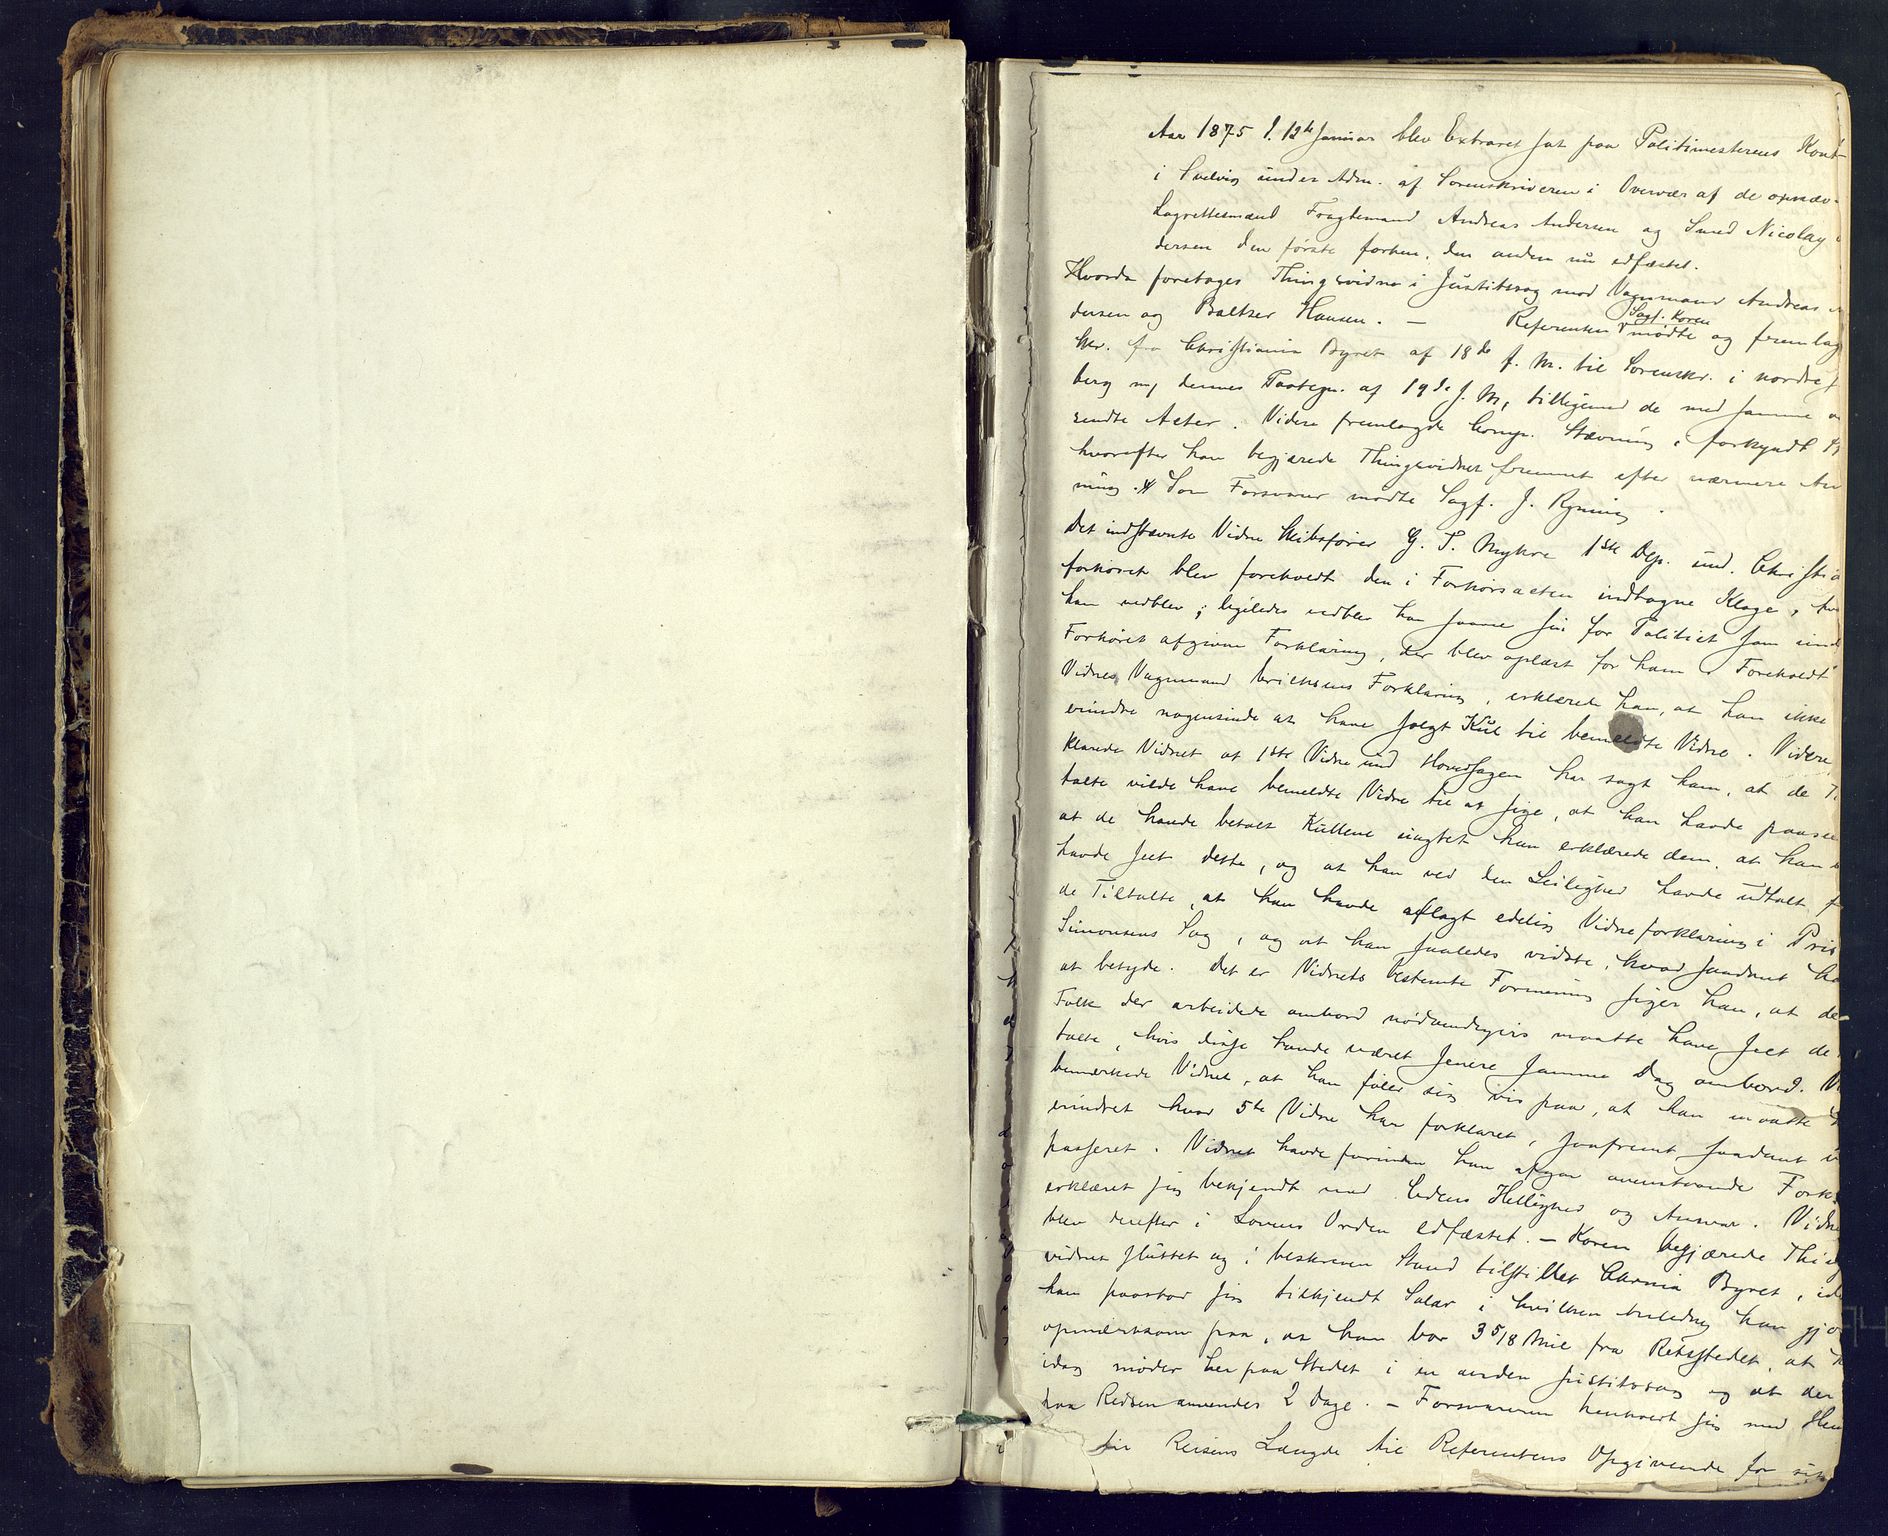 Aar 1875 d. 12te Januar blev Extraret sat paa Politimesterens Kont-
i Svelvig under Adm. af Sorenskriveren i Overvær af de opnæv-
Lagrettesmænd Fragtemand Andreas Andersen og Smed Nicolay
dersen den første forhen, den anden nu edfæstet.
Hvorda foretoges Thingsvidne i Justitssag mod Vognmand Andreas
dersen og Baltzer Hansen. — Referenten Sagf. Koren mødte og fremlag
Skr. fra Christiania Byret af 18de f. M. til Sorenskr. i nordre
berg m/ dennes Paategn. af 19de f. M, tilligemed de med samme
sendte Acter. Videre fremlagde Comp. Stævning, forkyndt
hvorefter han begjærede Thingsvidnet fremmet efter nærmere An
ning. Som Forsvarer mødte Sagf. J. Ryning.
Det indstævnte Vidne Skibsfører G. T. Myhre 1ste Dep. und. Christia
forhøret blev foreholdt den i Forhørsacten indtagne Klage,
han vedblev; ligeledes vedblev han saavel sin for Politiet som und
Forhøret afgivne Forklaring, der blev oplæst for ham. Foreholdt
Vidnes, Vognmand Eriksens Forklaring, erklærede han, at han ikke
erindre nogensinde at have solgt Kul til bemeldte Vidne. Videre
klarede Vidnet at 1ste Vidne und Hovedsagen har sagt ham, at de T
talte vilde have bemeldte Vidne til at sige, at han havde paasee
at de havde betalt Kullene uagtet han erklærede dem, at han
havde seet dette, og at han ved den Leilighed havde udtalt
de Tiltalte, at han havde aflagt edelig Vidneforklaring i
Simonsens Sag, og at han saaledes vidste, hvad saadant
at betyde. Det er Vidnets bestemte Formening siger han, at de
Folk der arbeidede ombord nødvendigvis maatte have seet de
talte, hvis disse havde været senere samme Dag ombord.
bemærkede Vidnet, at han føler sig vis paa, at han maatte
erindret hvad 5te Vidne har forklaret, saafremt saadant
passeret. Vidnet havde forinden han afgav ovenstaaende Fork
erklæret sig bekjendt med Edens Hellighed og Ansvar. Vidne
blev derefter i Lovens Orden edfæstet. — Koren begjærede Thing
vidnet sluttet og i beskreven Stand tilstillet Chrnia Byret,
han paastod sig tilkjendt Salær i hvilken Anledng han gjo
opmærksom paa, at han bor 3 5/8 Mil fra Retsstedet, at
idag møder her paa Stedet i en anden Justitssag og at der
paa Reisen anvendes 2 Dage. — Forsvareren henholdt sig med Hen
til Reisens Længde til Referentens Opgivende for